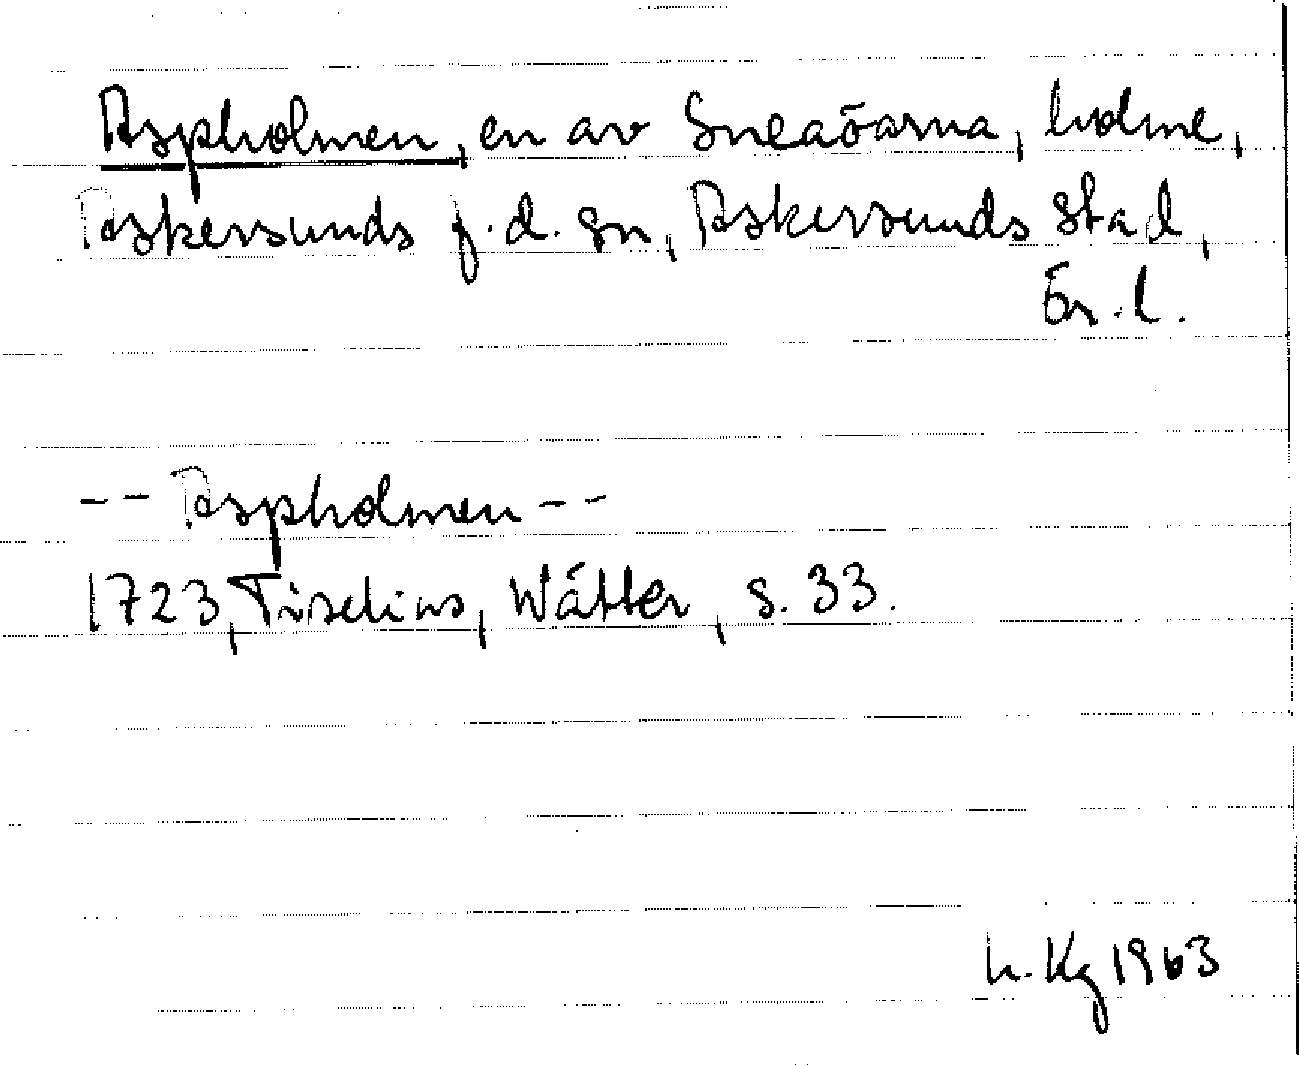 Aspholmen, en av Sneaöarna, holme,
Askersunds f.d. sn, Askersunds stad,
Ör.l.
-- Aspholmen --
1723, Tiselius, Wätter, s. 33.
h. Kg 1963